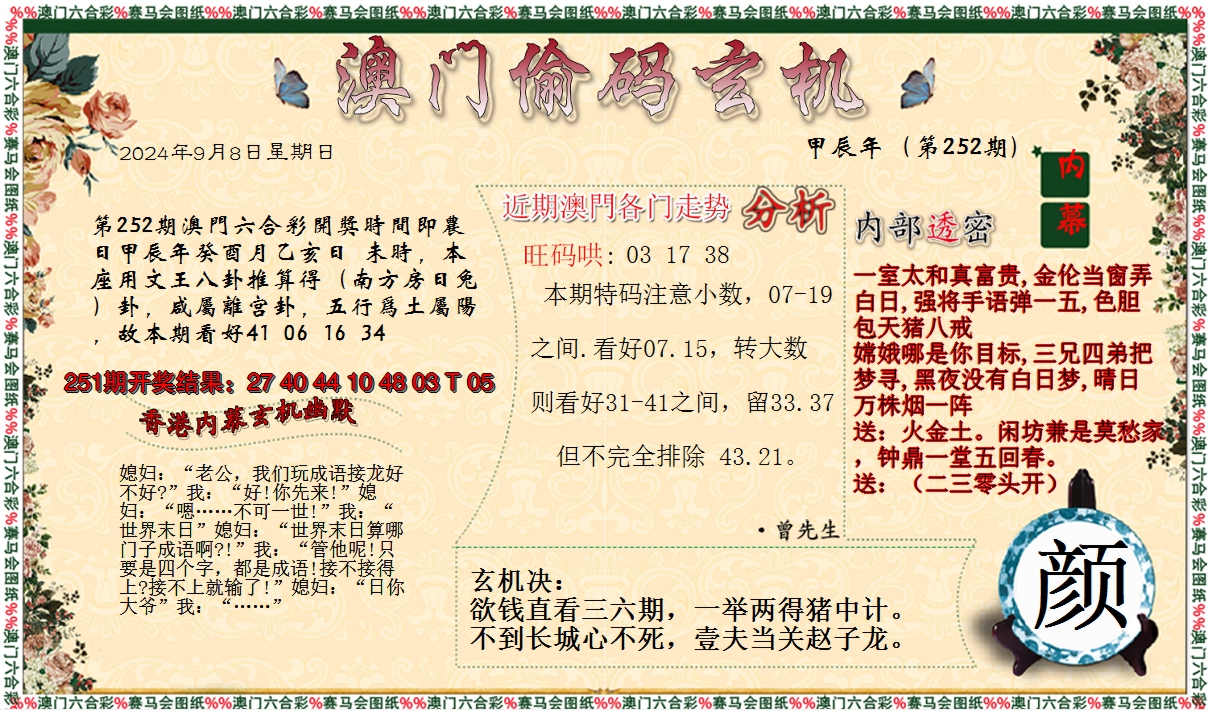 %%澳门六合彩%赛马会图纸%%澳门六合彩%赛马会图纸%%澳门六合彩%赛马会图纸%%澳门六合彩%赛马会图纸%%澳门六合彩%赛马会图纸%%澳门六合彩%赛马会图纸%%
澳门偷码玄机
2024年9月8日星期日
甲辰年（第252期）
内幕
第252期澳門六合彩開獎時間即農
日甲辰年癸酉月乙亥日 未時，本
座用文王八卦推算得（南方房日兔
）卦，咸屬離宫卦，五行爲土屬陽
，故本期看好41 06 16 34
251期开奖结果：27 40 44 10 48 03 T 05
香港内幕玄机幽默
媳妇：“老公，我们玩成语接龙好
不好?”我：“好!你先来!”媳
妇：“嗯……不可一世!”我：“
世界末日”媳妇：“世界末日算哪
门子成语啊?!”我：“管他呢!只
要是四个字，都是成语!接不接得
上?接不上就输了!”媳妇：“日你
大爷”我：“……”
近期澳門各门走势 分析
旺码哄: 03 17 38
本期特码注意小数，07-19
之间.看好07.15，转大数
则看好31-41之间，留33.37
但不完全排除 43.21。
·曾先生
内部透密
一室太和真富贵,金伦当窗弄
白日,强将手语弹一五,色胆
包天猪八戒
嫦娥哪是你目标,三兄四弟把
梦寻,黑夜没有白日梦,晴日
万株烟一阵
送：火金土。闲坊兼是莫愁家
，钟鼎一堂五回春。
送：（二三零头开）
玄机决：
欲钱直看三六期，一举两得猪中计。
不到长城心不死，壹夫当关赵子龙。
颜
%%澳门六合彩%赛马会图纸%%澳门六合彩%赛马会图纸%%澳门六合彩%赛马会图纸%%澳门六合彩%赛马会图纸%%澳门六合彩%赛马会图纸%%澳门六合彩%赛马会图纸%%